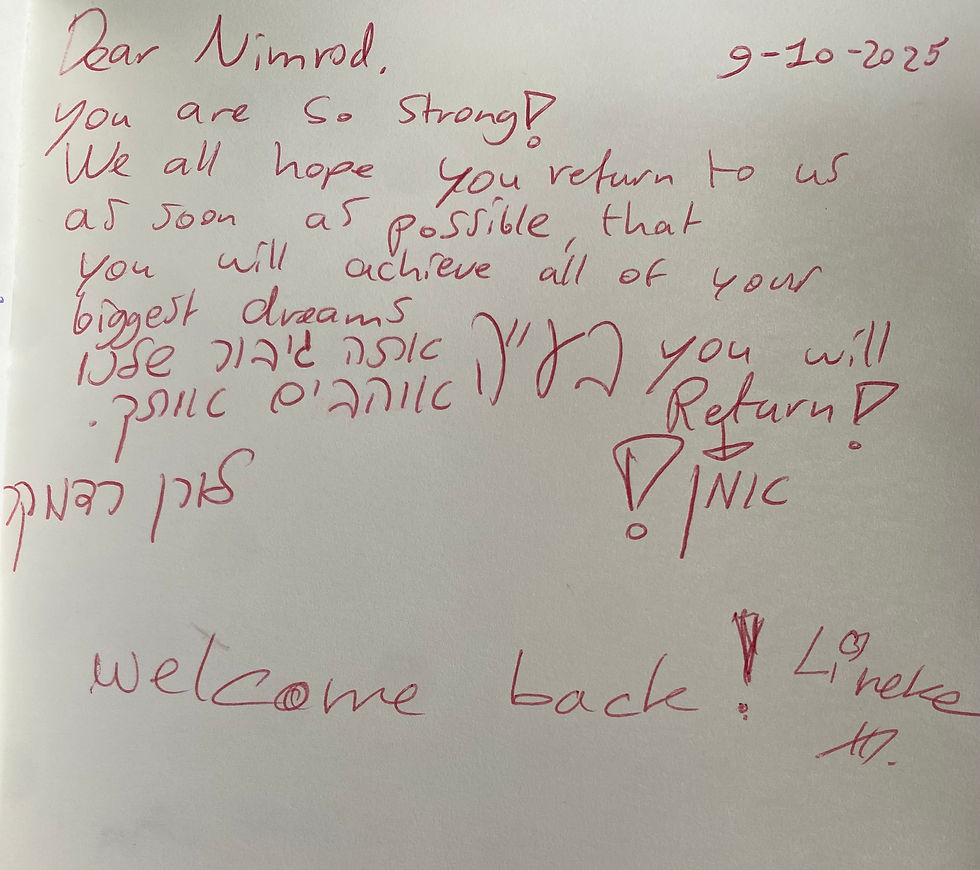 Dear Nimrod,
9-10-2025
you are so strong!
We all hope you return to us
as soon as possible, that
you will achieve all of your
biggest dreams
אתה גיבור שלנו
אוהבים אותך.
בע"ה you will
Return!
אמן!
לארן
welcome back! Lineke